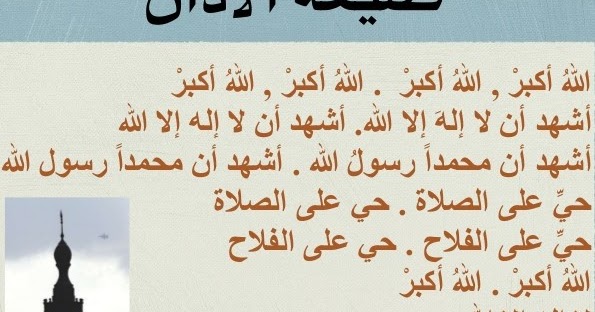 صيغة الأذان
اللهُ أكبرْ , اللهُ أكبرْ . اللهُ أكبرْ , اللهُ أكبرْ
أشهد أن لا إلهَ إلا الله. أشهد أن لا إله إلا الله
أشهد أن محمداً رسولُ الله . أشهد أن محمداً رسول الله
حيِّ على الصلاة . حي على الصلاة
حيِّ على الفلاح . حي على الفلاح
اللهُ أكبرْ . اللهُ أكبرْ